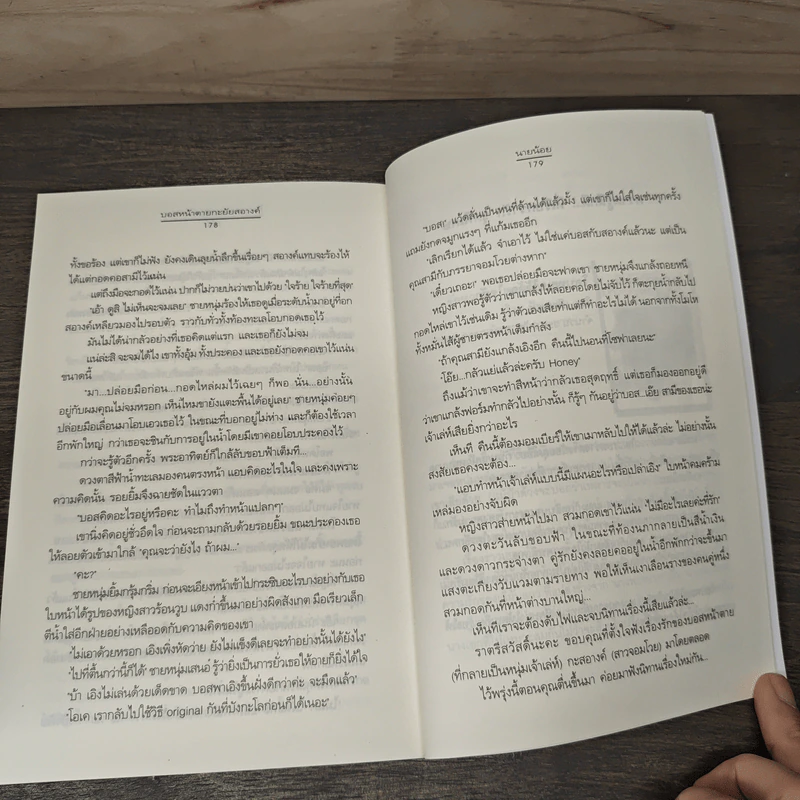 บอสหน้าตายกะยัยสอางค์
178
ทั้งขอร้อง แต่เขาก็ไม่ฟัง ยังคงเดินลุยน้ำลึกขึ้นเรื่อยๆ สอางค์แทบจะร้องไห้
ได้แต่กอดคอสามีไว้แน่น
แต่ถึงมือจะกอดไว้แน่น ปากก็ไม่วายบ่นว่าเขาไปด้วย 'ใจร้าย ใจร้ายที่สุด'
'เอ้า ดูสิ ไม่เห็นจะจมเลย' ชายหนุ่มร้องให้เธอดูเมื่อระดับน้ำมาอยู่ที่อก
สอางค์เหลียวมองไปรอบตัว ราวกับทั่วทั้งท้องทะเลโอบกอดเธอไว้
มันไม่ได้น่ากลัวอย่างที่เธอคิดแต่แรก และเธอก็ยังไม่จม
แน่ล่ะสิ จะจมได้ไง เขาทั้งอุ้ม ทั้งประคอง และเธอยังกอดคอเขาไว้แน่น
ขนาดนี้
'มา...ปล่อยมือก่อน...กอดไหล่ผมไว้เฉยๆ ก็พอ นั่น...อย่างนั้น
อยู่กับผมคุณไม่จมหรอก เห็นไหมขายังแตะพื้นได้อยู่เลย' ชายหนุ่มค่อยๆ
ปล่อยมือเลื่อนมาโอบเอวเธอไว้ ในขณะที่บอกอยู่ไม่ห่าง และก็ต้องใช้เวลา
อีกพักใหญ่ กว่าเธอจะชินกับการอยู่ในน้ำโดยมีเขาคอยโอบประคองไว้
กว่าจะรู้ตัวอีกครั้ง พระอาทิตย์ก็ใกล้ลับขอบฟ้าเต็มที...
ดวงตาสีฟ้าน้ำทะเลมองคนตรงหน้า แอบคิดอะไรในใจ และคงเพราะ
ความคิดนั้น รอยยิ้มจึงฉายชัดในแววตา
'บอสคิดอะไรอยู่หรือคะ ทำไมถึงทำหน้าแปลกๆ'
เขานิ่งคิดอยู่ชั่วอึดใจ ก่อนจะถามกลับด้วยรอยยิ้ม ขณะประคองเธอ
ให้ลอยตัวเข้ามาใกล้ 'คุณจะว่ายังไง ถ้าผม...'
'คะ?'
ชายหนุ่มยิ้มกรุ้มกริ่ม ก่อนจะเอียงหน้าเข้าไปกระซิบอะไรบางอย่างกับเธอ
ใบหน้าได้รูปของหญิงสาวร้อนวูบ แดงก่ำขึ้นมาอย่างผิดสังเกต มือเรียวเล็ก
ตีน้ำใส่อีกฝ่ายอย่างเหลืออดกับความคิดของเขา
'ไม่เอาด้วยหรอก เอิงเพิ่งหัดว่าย ยังไม่แข็งดีเลยจะทำอย่างนั้นได้ยังไง'
'ไปที่ตื้นกว่านี้ก็ได้' ชายหนุ่มเสนอ รู้ว่ายิ่งเป็นการยั่วเธอให้อายก็ยิ่งได้ใจ
'บ้า เอิงไม่เล่นด้วยเด็ดขาด บอสพาเอิงขึ้นฝั่งดีกว่าค่ะ จะมืดแล้ว'
'โอเค เรากลับไปใช้วิธี original กันที่บังกะโลก่อนก็ได้เนอะ'
นายน้อย
179
'บอส!' แว้ดลั่นเป็นหนที่ล้านได้แล้วมั้ง แต่เขาก็ไม่ใส่ใจเช่นทุกครั้ง
แถมยังกดจมูกแรงๆ ที่แก้มเธออีก
'เลิกเรียกได้แล้ว จำเอาไว้ ไม่ใช่แค่บอสกับสอางค์แล้วนะ แต่เป็น
คุณสามีกับภรรยาจอมโวยต่างหาก'
'เดี๋ยวเถอะ!' พอเธอปล่อยมือจะฟาดเขา ชายหนุ่มจึงแกล้งถอยหนี
หญิงสาวพอรู้ตัวว่าเขาแกล้งให้ลอยคอโดยไม่จับไว้ ก็ตะกุยน้ำกลับไป
กอดไหล่เขาไว้เช่นเดิม รู้ว่าตัวเองเสียท่าแต่ก็ทำอะไรไม่ได้ นอกจากทั้งโมโห
ทั้งหมั่นไส้ผู้ชายตรงหน้าเต็มกำลัง
'ถ้าคุณสามียังแกล้งเอิงอีก คืนนี้ไปนอนที่โซฟาเลยนะ'
'โอ๊ย...กลัวแย่แล้วล่ะครับ Honey'
ถึงแม้ว่าเขาจะทำสีหน้าว่ากลัวเธอสุดฤทธิ์ แต่เธอก็มองออกอยู่ดี
ว่าเขาแกล้งฟอร์มทำกลัวไปอย่างนั้น ก็รู้ๆ กันอยู่ว่าบอส..เอ๊ย สามีของเธอน่ะ
เจ้าเล่ห์เสียยิ่งกว่าอะไร
เห็นที คืนนี้ต้องมอมเบียร์ให้เขาเมาหลับไปให้ได้แล้วล่ะ ไม่อย่างนั้น
สงสัยเธอคงจะต้อง...
'แอบทำหน้าเจ้าเล่ห์แบบนี้มีแผนอะไรหรือเปล่าเอิง' ใบหน้าคมคร้าม
เหล่มองอย่างจับผิด
หญิงสาวส่ายหน้าไปมา สวมกอดเขาไว้แน่น 'ไม่มีอะไรเลยค่ะที่รัก'
ดวงตะวันลับขอบฟ้า ในขณะที่ท้องนภากลายเป็นสีน้ำเงิน
และดวงดาวกระจ่างตา คู่รักยังคงลอยคออยู่ในน้ำอีกพักกว่าจะขึ้นมา
แสงตะเกียงวับแวมตามรายทาง พอให้เห็นเงาเลือนรางของคนคู่หนึ่ง
สวมกอดกันที่หน้าต่างบานใหญ่...
เห็นทีเราจะต้องดับไฟและจบนิทานเรื่องนี้เสียแล้วล่ะ...
ราตรีสวัสดิ์นะคะ ขอบคุณที่ตั้งใจฟังเรื่องรักของบอสหน้าตาย
(ที่กลายเป็นหนุ่มเจ้าเล่ห์) กะสอางค์ (สาวจอมโวย) มาโดยตลอด
ไว้พรุ่งนี้ตอนคุณตื่นขึ้นมา ค่อยมาฟังนิทานเรื่องใหม่กัน...